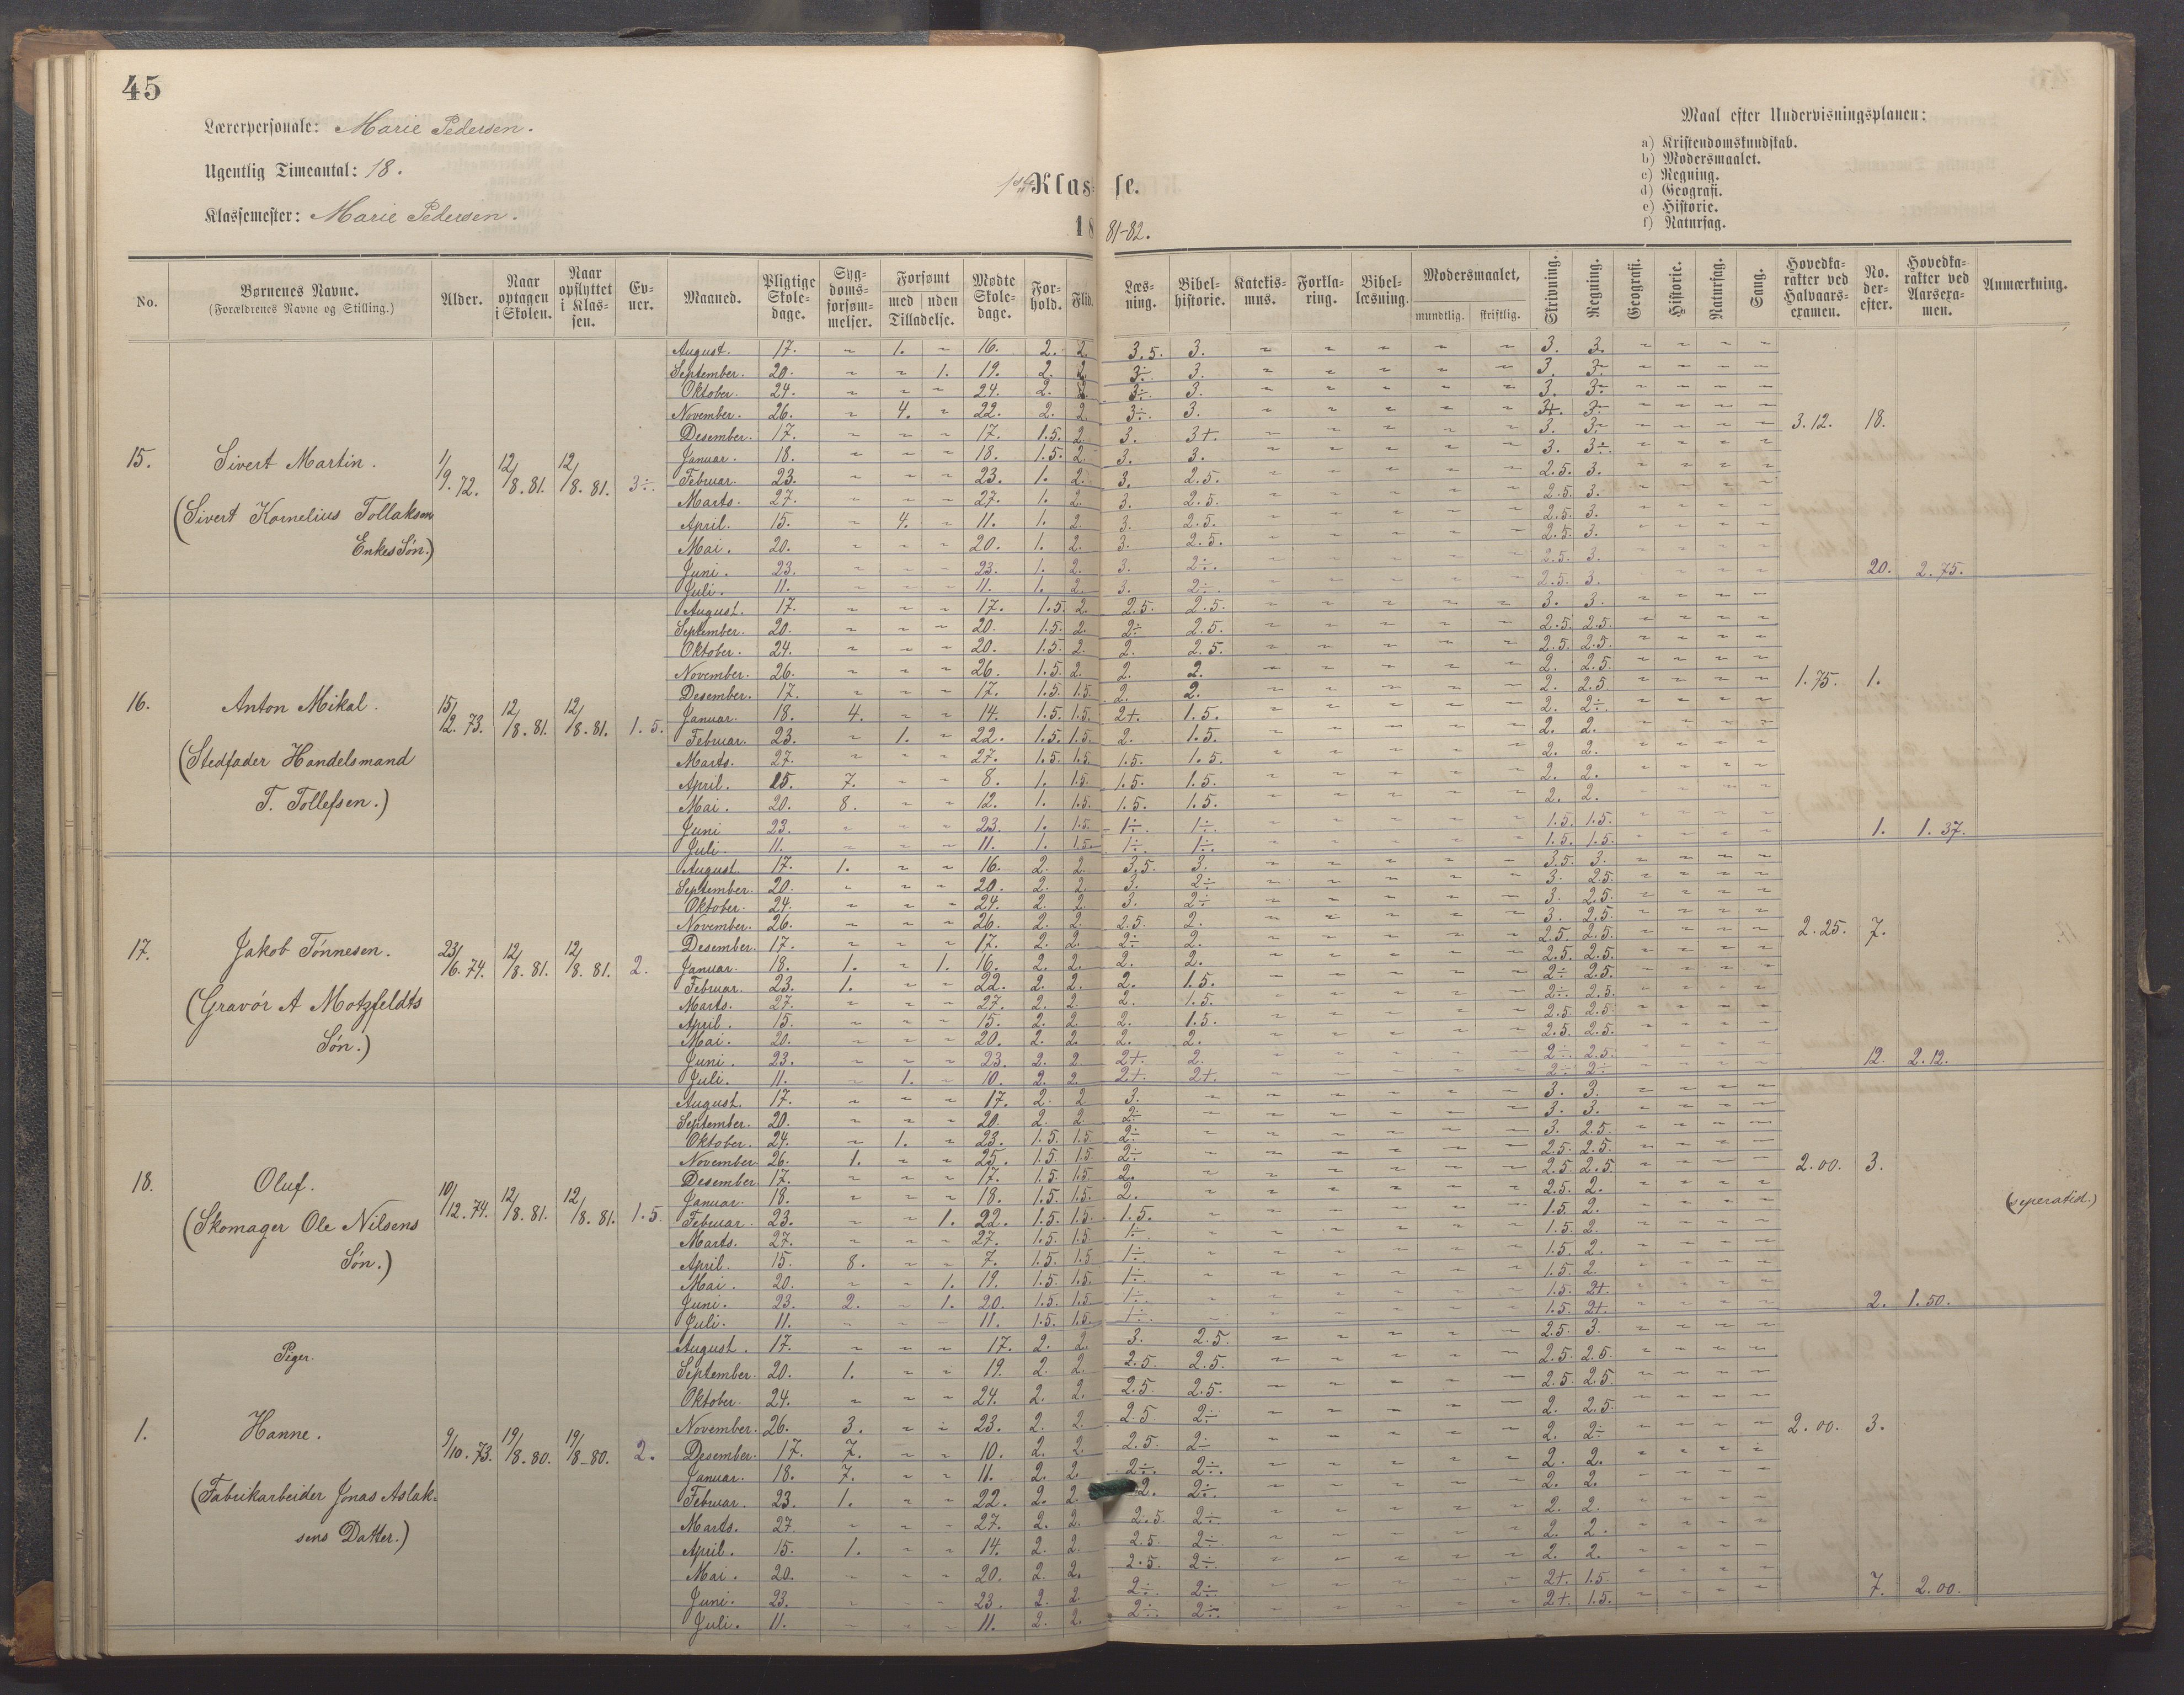 45
Lærerpersonale: Marie Pedersen.
Ugentlig Timeantal: 18.
Klassemester: Marie Pedersen.
1ste Klasse.
1881-82.
Maal efter Undervisningsplanen:
a) Kristendomskundskab.
b) Modersmaalet.
c) Regning.
d) Geografi.
e) Historie.
f) Naturfag.
No. | Børnenes Navne. (Forældrenes Navne og Stilling.) | Alder. | Naar optagen i Skolen. | Naar opflyttet i Klassen. | Evner. | Maaned. | Pligtige Skoledage. | Sygdomsforsømmelser. | Forsømt med Tilladelse. | uden Tilladelse. | Mødte Skoledage. | Forhold. | Flid. | Læsning. | Bibelhistorie. | Katekismus. | Forklaring. | Bibellæsning. | Modersmaalet, mundtlig. | skriftlig. | Skrivning. | Regning. | Geografi. | Historie. | Naturfag. | Sang. | Hovedkarakter ved Halvaarsexamen. | No. derefter. | Hovedkarakter ved Aarsexamen. | Anmærkning.
15. Sivert Martin. (Sivert Kornelius Tollaksen Enkes Søn.) 1/9. 72. 12/8. 81. 12/8. 81. 3÷. 3.12. 18. 20. 2.75.
August. 17. ~ 1. ~ 16. 2. 2. 3.5. 3. ~ ~ ~ ~ ~ 3. 3. ~ ~ ~ ~
September. 20. ~ ~ 1. 19. 2. 2. 3÷. 3. ~ ~ ~ ~ ~ 3. 3÷ ~ ~ ~ ~
Oktober. 24. ~ ~ ~ 24. 2. 2. 3÷. 3. ~ ~ ~ ~ ~ 3. 3÷ ~ ~ ~ ~
November. 26. ~ 4. ~ 22. 2. 2. 3÷. 3. ~ ~ ~ ~ ~ 3+. 3÷ ~ ~ ~ ~
Desember. 17. ~ ~ ~ 17. 1.5. 2. 3. 3+. ~ ~ ~ ~ ~ 3. 3÷ ~ ~ ~ ~
Januar. 18. ~ ~ ~ 18. 1.5. 2. 3. 3. ~ ~ ~ ~ ~ 3. 3÷ ~ ~ ~ ~
Februar. 23. ~ ~ ~ 23. 1. 2. 3. 2.5. ~ ~ ~ ~ ~ 2.5. 3. ~ ~ ~ ~
Marts. 27. ~ ~ ~ 27. 1. 2. 3. 2.5. ~ ~ ~ ~ ~ 2.5. 3. ~ ~ ~ ~
April. 15. ~ 4. ~ 11. 1. 2. 3. 2.5. ~ ~ ~ ~ ~ 2.5. 3. ~ ~ ~ ~
Mai. 20. ~ ~ ~ 20. 1. 2. 3. 2.5. ~ ~ ~ ~ ~ 2.5. 3. ~ ~ ~ ~
Juni. 23. ~ ~ ~ 23. 1. 2. 3. 2÷. ~ ~ ~ ~ ~ 2.5. 3. ~ ~ ~ ~
Juli. 11. ~ ~ ~ 11. 1. 2. 3. 2÷. ~ ~ ~ ~ ~ 2.5. 3. ~ ~ ~ ~
16. Anton Mikal. (Stedfader Handelsmand T. Tollefsen.) 15/12. 73. 12/8. 81. 12/8. 81. 1.5. 1.75. 1. 1. 1.37.
August. 17. ~ ~ ~ 17. 1.5. 2. 2.5. 2.5. ~ ~ ~ ~ ~ 3. 3. ~ ~ ~ ~
September. 20. ~ ~ ~ 20. 1.5. 2. 2÷ 2.5. ~ ~ ~ ~ ~ 2.5. 2.5. ~ ~ ~ ~
Oktober. 24. ~ ~ ~ 20. 1.5. 2. 2. 2.5. ~ ~ ~ ~ ~ 2.5. 2.5. ~ ~ ~ ~
November. 26. ~ ~ ~ 26. 1.5. 2. 2. 2. ~ ~ ~ ~ ~ 2. 2.5. ~ ~ ~ ~
Desember. 17. ~ ~ ~ 17. 1.5. 1.5. 2. 2. ~ ~ ~ ~ ~ 2. 2.5 ~ ~ ~ ~
Januar. 18. 4. ~ ~ 14. 1.5. 1.5. 2+. 1.5. ~ ~ ~ ~ ~ 2. 2÷. ~ ~ ~ ~
Februar. 23. ~ 1. ~ 22. 1.5. 1.5. 2. 1.5. ~ ~ ~ ~ ~ 2. 2. ~ ~ ~ ~
Marts. 27. ~ ~ ~ 27. 1.5. 1.5. 1.5. 1.5. ~ ~ ~ ~ ~ 2. 2. ~ ~ ~ ~
April. 15. 7. ~ ~ 8. 1. 1.5. 1.5. 1.5. ~ ~ ~ ~ ~ 2. 2. ~ ~ ~ ~
Mai. 20. 8. ~ ~ 12. 1. 1.5. 1.5. 1.5. ~ ~ ~ ~ ~ 2. 2. ~ ~ ~ ~
Juni 23. ~ ~ ~ 23. 1. 1.5. 1÷. 1÷. ~ ~ ~ ~ ~ 1.5. 1.5. ~ ~ ~ ~
Juli. 11. ~ ~ ~ 11. 1. 1.5. 1÷. 1÷. ~ ~ ~ ~ ~ 1.5. 1.5. ~ ~ ~ ~
17. Jakob Tønnesen. (Gravør A Motzfeldts Søn.) 23/6. 74. 12/8. 81. 12/8. 81. 2. 2.25. 7. 12. 2.12.
August. 17. 1. ~ ~ 16. 2. 2. 3.5. 3. ~ ~ ~ ~ ~ 3.5. 3. ~ ~ ~ ~
September. 20. ~ ~ ~ 20. 2. 2. 3. 2÷ ~ ~ ~ ~ ~ 3. 2.5. ~ ~ ~ ~
Oktober. 24. ~ ~ ~ 24. 2. 2. 3. 2÷ ~ ~ ~ ~ ~ 3. 2.5. ~ ~ ~ ~
November. 26. ~ ~ ~ 26. 2. 2. 2.5. 2. ~ ~ ~ ~ ~ 3. 2.5. ~ ~ ~ ~
Desember. 17. ~ ~ ~ 17. 2. 2. 2÷ 2. ~ ~ ~ ~ ~ 2.5. 2.5. ~ ~ ~ ~
Januar. 18. 1. ~ 1. 16. 2. 2. 2. 2. ~ ~ ~ ~ ~ 2.5. 2.5. ~ ~ ~ ~
Februar. 23. 1. ~ ~ 22. 2. 2. 2. 1.5. ~ ~ ~ ~ ~ 2÷ 2.5. ~ ~ ~ ~
Marts. 27. ~ ~ ~ 27. 2. 2. 2. 1.5. ~ ~ ~ ~ ~ 2÷. 2.5. ~ ~ ~ ~
April. 15. ~ ~ ~ 15. 2. 2. 2. 1.5. ~ ~ ~ ~ ~ 2.5. 2.5 ~ ~ ~ ~
Mai. 20. ~ ~ ~ 20. 2. 2. 2. 2. ~ ~ ~ ~ ~ 2.5. 2.5. ~ ~ ~ ~
Juni. 23. ~ ~ ~ 23. 2. 2. 2+. 2. ~ ~ ~ ~ ~ 2÷. 2.5. ~ ~ ~ ~
Juli. 11. ~ 1. ~ 10. 2. 2. 2+. 2+. ~ ~ ~ ~ ~ 2÷ 2÷ ~ ~ ~ ~
18. Oluf. (Skomager Ole Nilsens Søn.) 10/12. 74. 12/8. 81. 12/8. 81. 1.5. 2.00. 3. 2. 1.50. (seperatist.)
August. 17. ~ ~ ~ 17. 2. 2 3. ~ ~ ~ ~ ~ ~ 3. 3. ~ ~ ~ ~
September. 20. ~ ~ ~ 20. 2. 2 2÷ ~ ~ ~ ~ ~ ~ 3. 3. ~ ~ ~ ~
Oktober. 24. ~ 1. ~ 23. 1.5. 1.5 2÷ ~ ~ ~ ~ ~ ~ 3. 2.5. ~ ~ ~ ~
November. 26. 1. ~ ~ 25. 1.5. 1.5. 2÷ ~ ~ ~ ~ ~ ~ 2.5. 2.5. ~ ~ ~ ~
Desember. 17. ~ ~ ~ 17. 1.5. 1.5. 2. ~ ~ ~ ~ ~ ~ 2.5. 2.5. ~ ~ ~ ~
Januar. 18. ~ ~ ~ 18. 1.5. 1.5. 2. ~ ~ ~ ~ ~ ~ 2.5. 2. ~ ~ ~ ~
Februar. 23. ~ ~ 1. 22. 1.5. 1.5. 1.5. ~ ~ ~ ~ ~ ~ 1.5. 2. ~ ~ ~ ~
Marts. 27. ~ ~ ~ 27. 1.5. 1.5 1÷ ~ ~ ~ ~ ~ ~ 1.5. 2. ~ ~ ~ ~
April. 15. 8. ~ ~ 7. 1.5. 1.5 1÷ ~ ~ ~ ~ ~ ~ 1.5. 2. ~ ~ ~ ~
Mai. 20. ~ ~ 1. 19. 1.5. 1.5. 1÷ ~ ~ ~ ~ ~ ~ 1.5. 2. ~ ~ ~ ~
Juni. 23. 2. ~ 1. 20. 1.5. 1.5 1÷. ~ ~ ~ ~ ~ ~ 1.5. 2+. ~ ~ ~ ~
Juli. 11. ~ ~ ~ 11. 1.5. 1.5. 1÷. ~ ~ ~ ~ ~ ~ 1.5. 2+. ~ ~ ~ ~
Piger.
1. Hanne. (Fabrikarbeider Jonas Aslaksens Datter.) 9/10. 73. 19/8. 80. 19/8-80. 2. 2.00. 3. 7. 2.00.
August. 17. ~ ~ ~ 17. 2. 2. 3. 2.5. ~ ~ ~ ~ ~ 2.5. 3. ~ ~ ~ ~
September. 20. 1. ~ ~ 19. 2. 2. 2.5. 2.5. ~ ~ ~ ~ ~ 2.5. 2.5. ~ ~ ~ ~
Oktober. 24. ~ ~ ~ 24. 2. 2. 2.5. 2.5. ~ ~ ~ ~ ~ 2.5. 2.5 ~ ~ ~ ~
November. 26. 3. ~ ~ 23. 2. 2. 2.5 2÷ ~ ~ ~ ~ ~ 2. 2.5. ~ ~ ~ ~
Desember. 17. 7. ~ ~ 10. 2. 2. 2.5. 2÷ ~ ~ ~ ~ ~ 2. 2÷ ~ ~ ~ ~
Januar. 18. 7. ~ ~ 11. 2. 2. 2÷. 2÷. ~ ~ ~ ~ ~ 2. 2. ~ ~ ~ ~
Februar. 23. 1. ~ ~ 22. 2. 2. 2. 2÷. ~ ~ ~ ~ ~ 2. 2. ~ ~ ~ ~
Marts. 27. ~ ~ ~ 27. 2. 2. 2.5. 2÷ ~ ~ ~ ~ ~ 2. 2. ~ ~ ~ ~
April. 15. 1. ~ ~ 14. 2. 2. 2.5. 2÷ ~ ~ ~ ~ ~ 2. 2. ~ ~ ~ ~
Mai. 20. ~ ~ ~ 20. 2. 2. 2.5. 2÷. ~ ~ ~ ~ ~ 2. 2. ~ ~ ~ ~
Juni. 23. ~ ~ ~ 23. 2. 2. 2÷ 2÷ ~ ~ ~ ~ ~ 2+. 1.5 ~ ~ ~ ~
Juli. 11. ~ ~ ~ 11. 2. 2. 2÷. 2÷ ~ ~ ~ ~ ~ 2+. 1.5. ~ ~ ~ ~